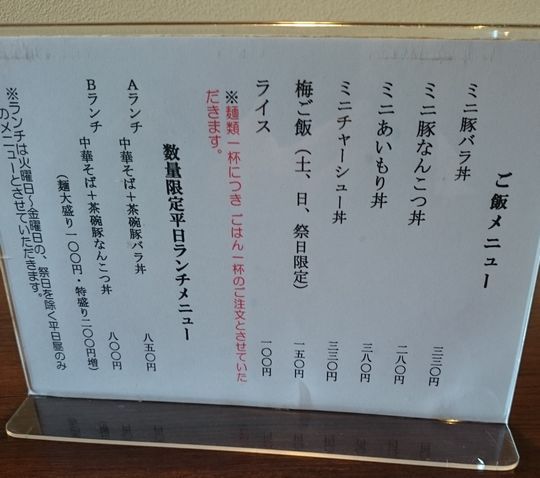 ご飯メニュー
ミニ豚バラ丼 三三〇円
ミニ豚なんこつ丼 二八〇円
ミニあいもり丼 三八〇円
ミニチャーシュー丼 三三〇円
梅ご飯（土、日、祭日限定） 一五〇円
ライス 一〇〇円
※麺類一杯につき ごはん一杯のご注文とさせていた
だきます。
数量限定平日ランチメニュー
Aランチ 中華そば＋茶碗豚バラ丼 八五〇円
Bランチ 中華そば＋茶碗豚なんこつ丼 八〇〇円
（麺大盛り一〇〇円・特盛り二〇〇円増）
※ランチは火曜日～金曜日の、祭日を除く平日昼のみ
のメニューとさせていただきます。